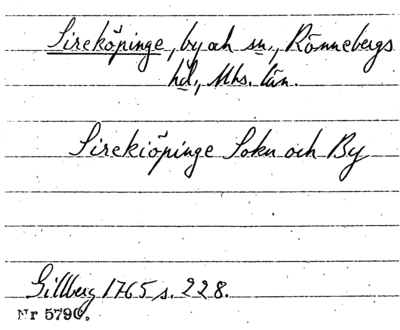 Sireköpinge, by och sn., Rönnebergs
hd., Mhs. län.
Sirekiöpinge Sokn och By
Gillberg 1765 s. 228.
Nr 5790.